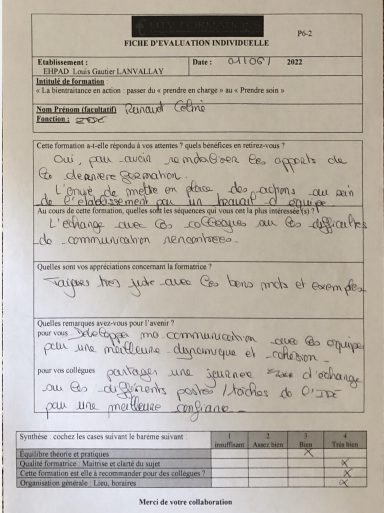 FORMATION
FICHE D'EVALUATION INDIVIDUELLE
P6-2
Etablissement :
EHPAD Louis Gautier LANVALLAY
Date : 01/06/ 2022
Intitulé de formation :
« La bientraitance en action : passer du « prendre en charge » au « Prendre soin »
Nom Prénom (facultatif) Renaut
Fonction : IDE
Cette formation a-t-elle répondu à vos attentes ? quels bénéfices en retirez-vous ?
Oui, pour avoir remobiliser les apports de
la dernière formation.
L'envie de mettre en place des actions au sein
de l'établissement par un travail d'équipe
Au cours de cette formation, quelles sont les séquences qui vous ont la plus intéressée(s) ?
L'échange avec les collègues sur les difficultés
de communication rencontrées.
Quelles sont vos appréciations concernant la formatrice ?
Toujours très juste avec les bons mots et exemples
Quelles remarques avez-vous pour l'avenir ?
pour vous Développer ma communication avec les équipes
pour une meilleure dynamique et cohésion.
pour vos collègues partager une journée d'échange
sur les différents postes / tâches de l'IDE
pour une meilleure confiance.
Synthèse : cochez les cases suivant le barème suivant :
1 insuffisant
2 Assez bien
3 Bien
4 Très bien
Équilibre théorie et pratiques X
Qualité formatrice : Maîtrise et clarté du sujet X
Cette formation est elle à recommander pour des collègues ? X
Organisation générale : Lieu, horaires X
Merci de votre collaboration